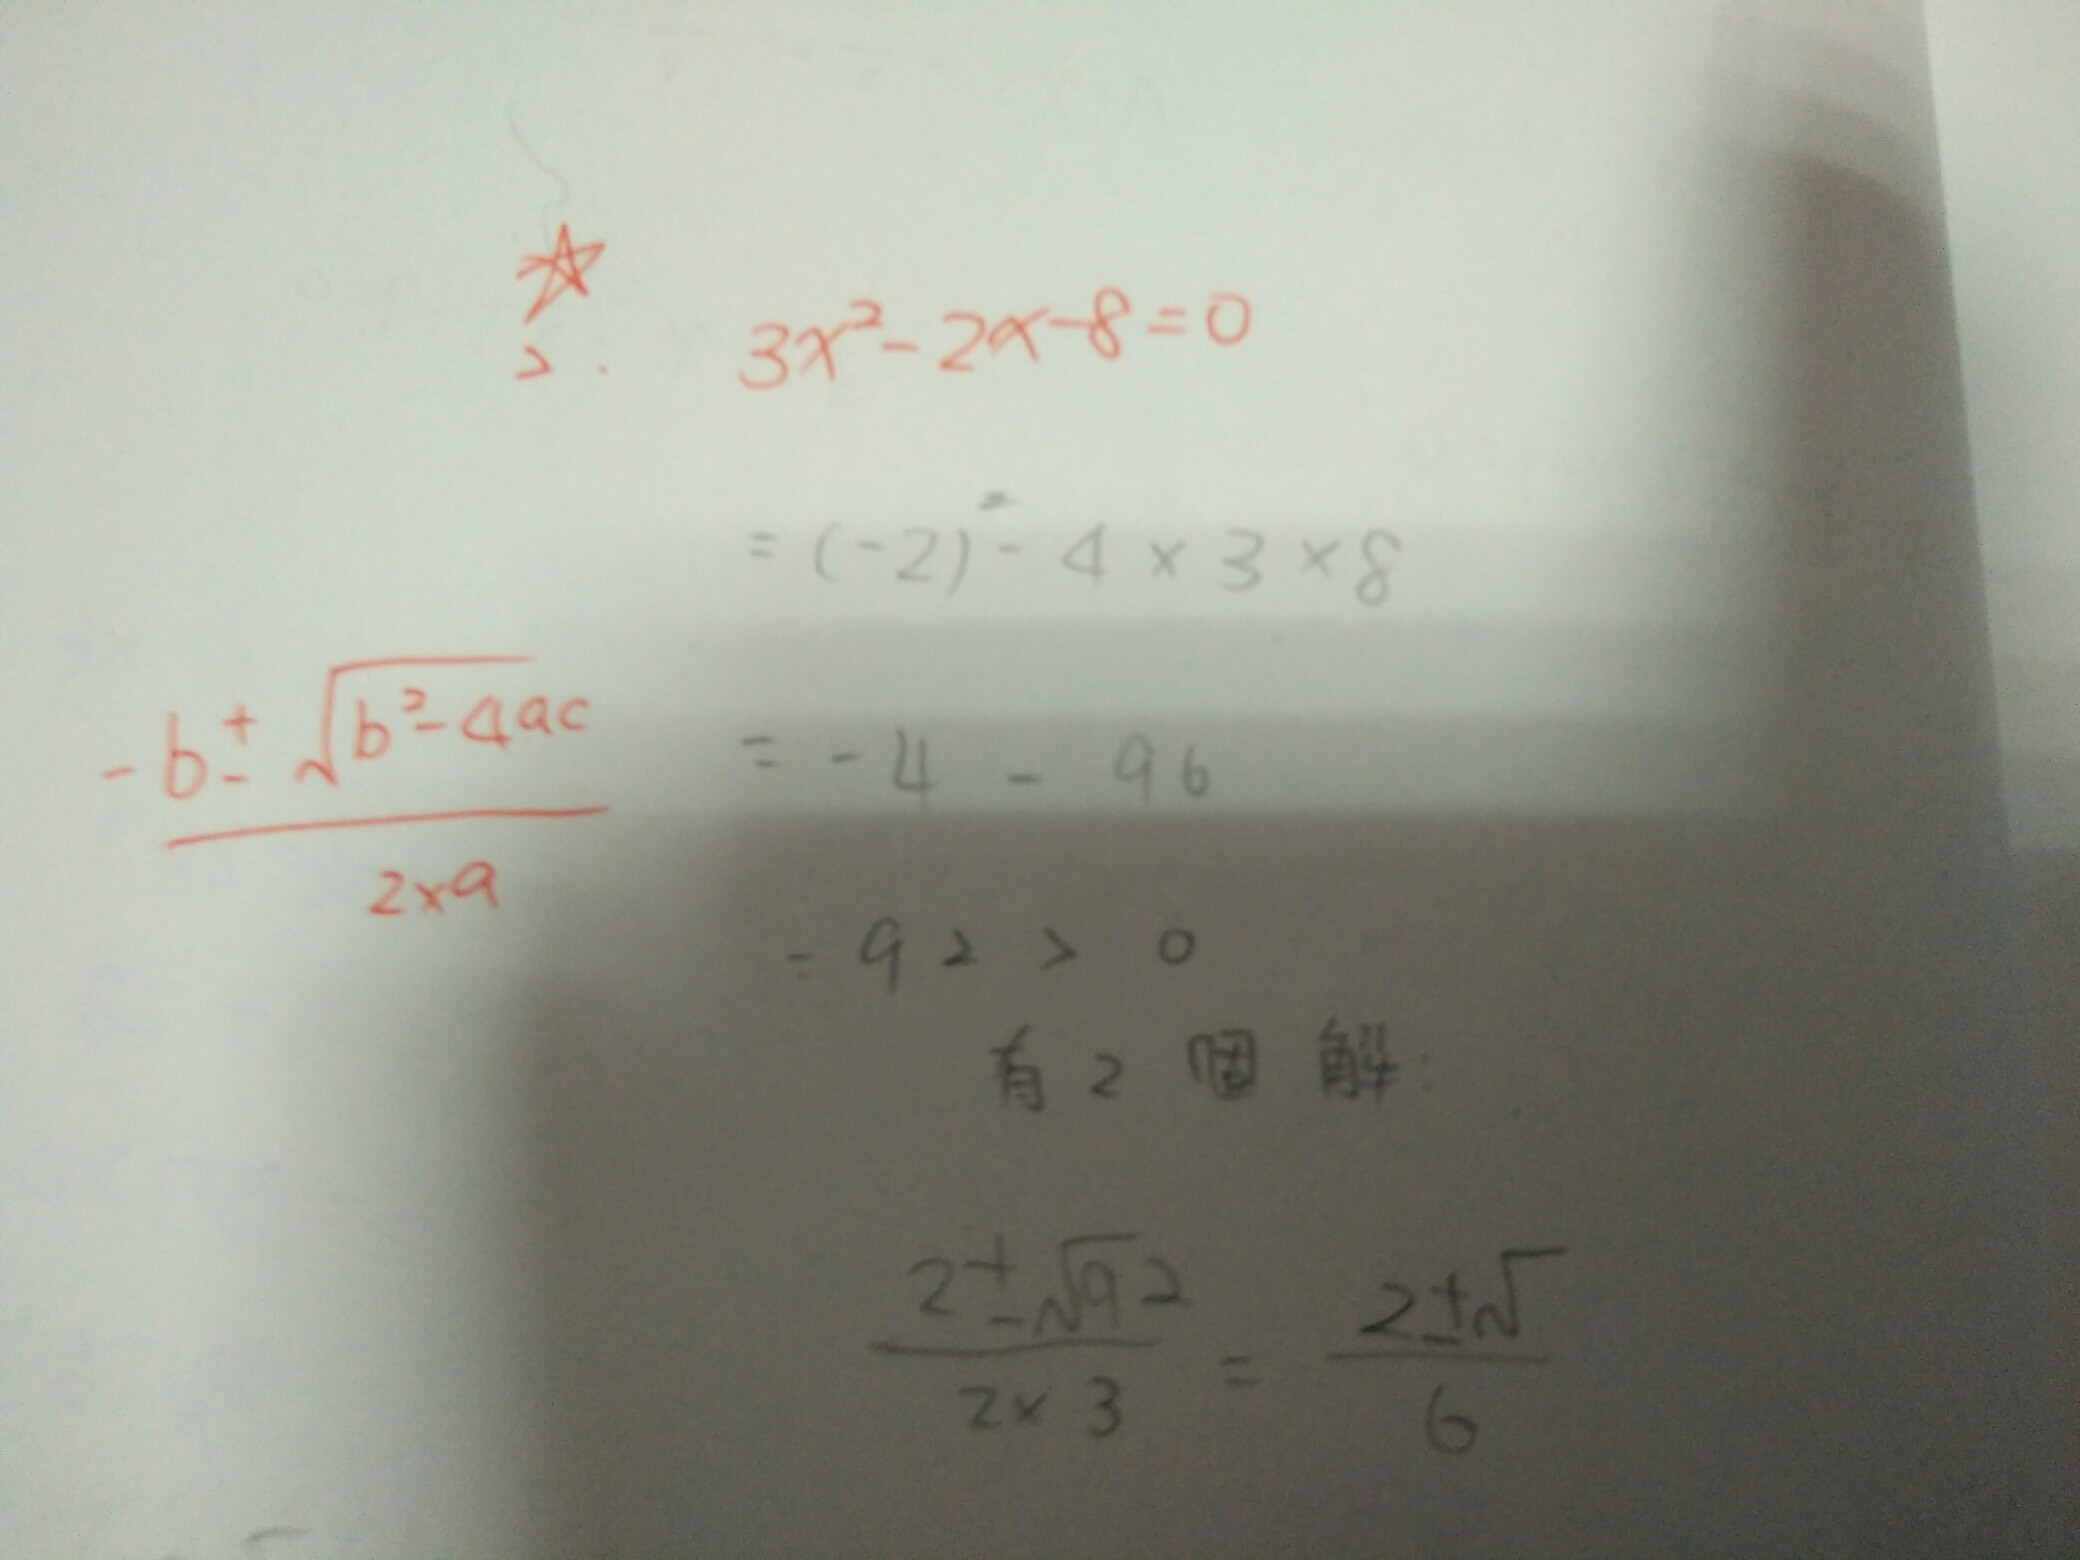 ☆
2. 3x²-2x-8=0
=(-2)²-4×3×8
-b±√b²-4ac
2×a
=-4-96
=92>0
有2個解:
2±√92
2×3
=
2±√
6